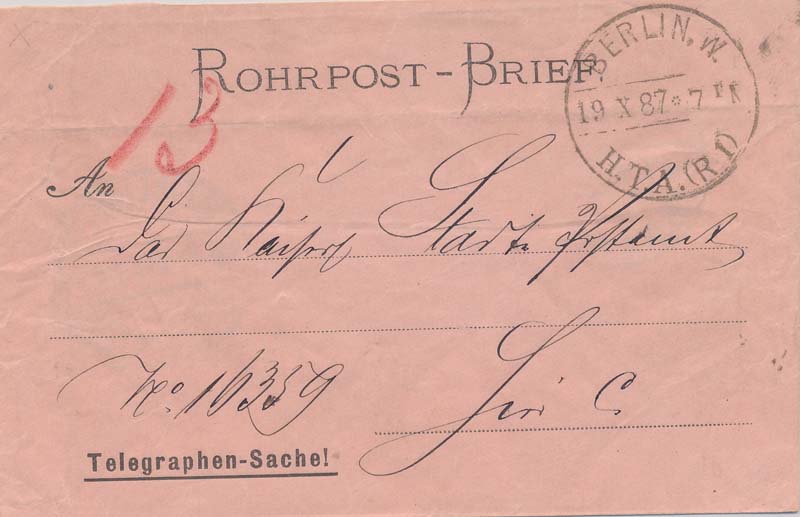 ROHRPOST-BRIEF.
BERLIN, W.
19 X 87 * 7
H.T.A.(R.1)
13
An
Das Kaiserl Stadt Postamt
No. 16359
Hier C
Telegraphen-Sache!